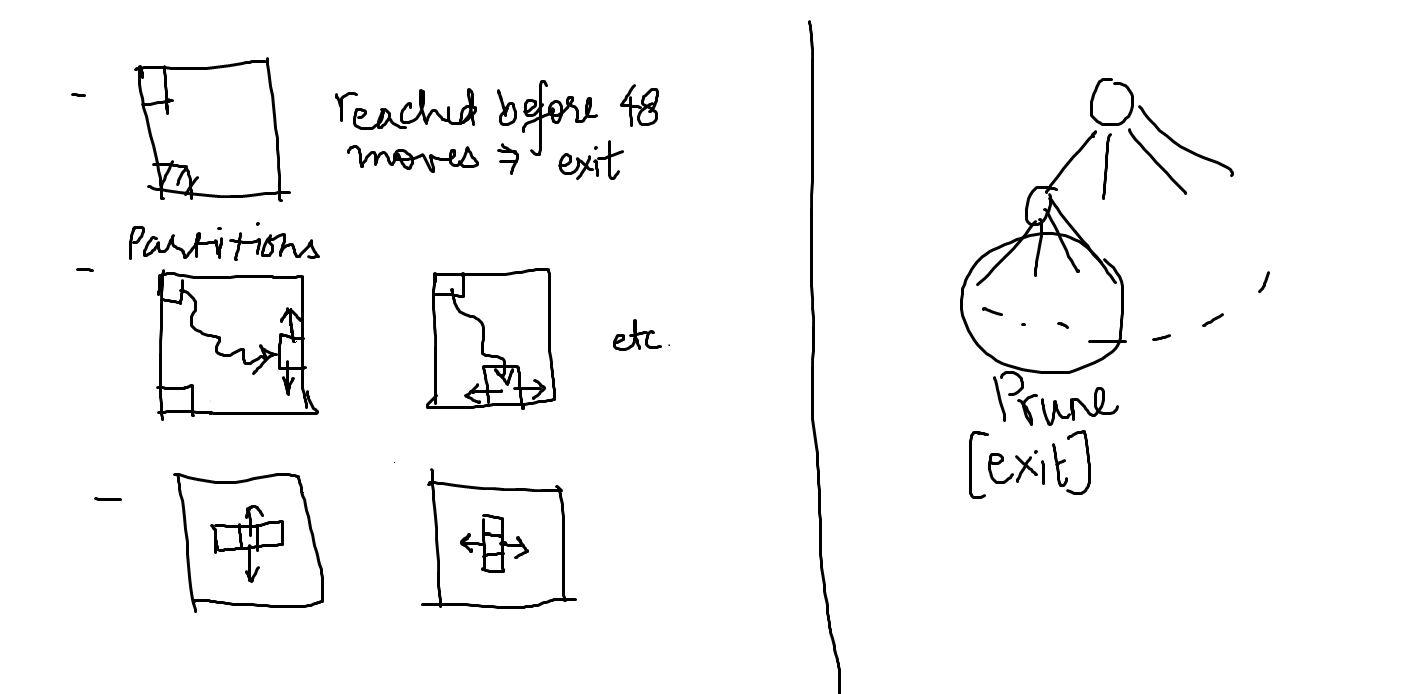 - reached before 48
moves ⇒ exit
Partitions
- etc.
-
Prune
[exit]